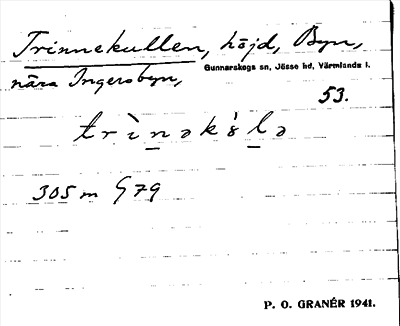 Trinnekullen, höjd, Byn,
Gunnarskogs sn, Jösse hd, Värmlands l.
nära Ingersbyn,
53.
305 m G 79
P. O. GRANÉR 1941.